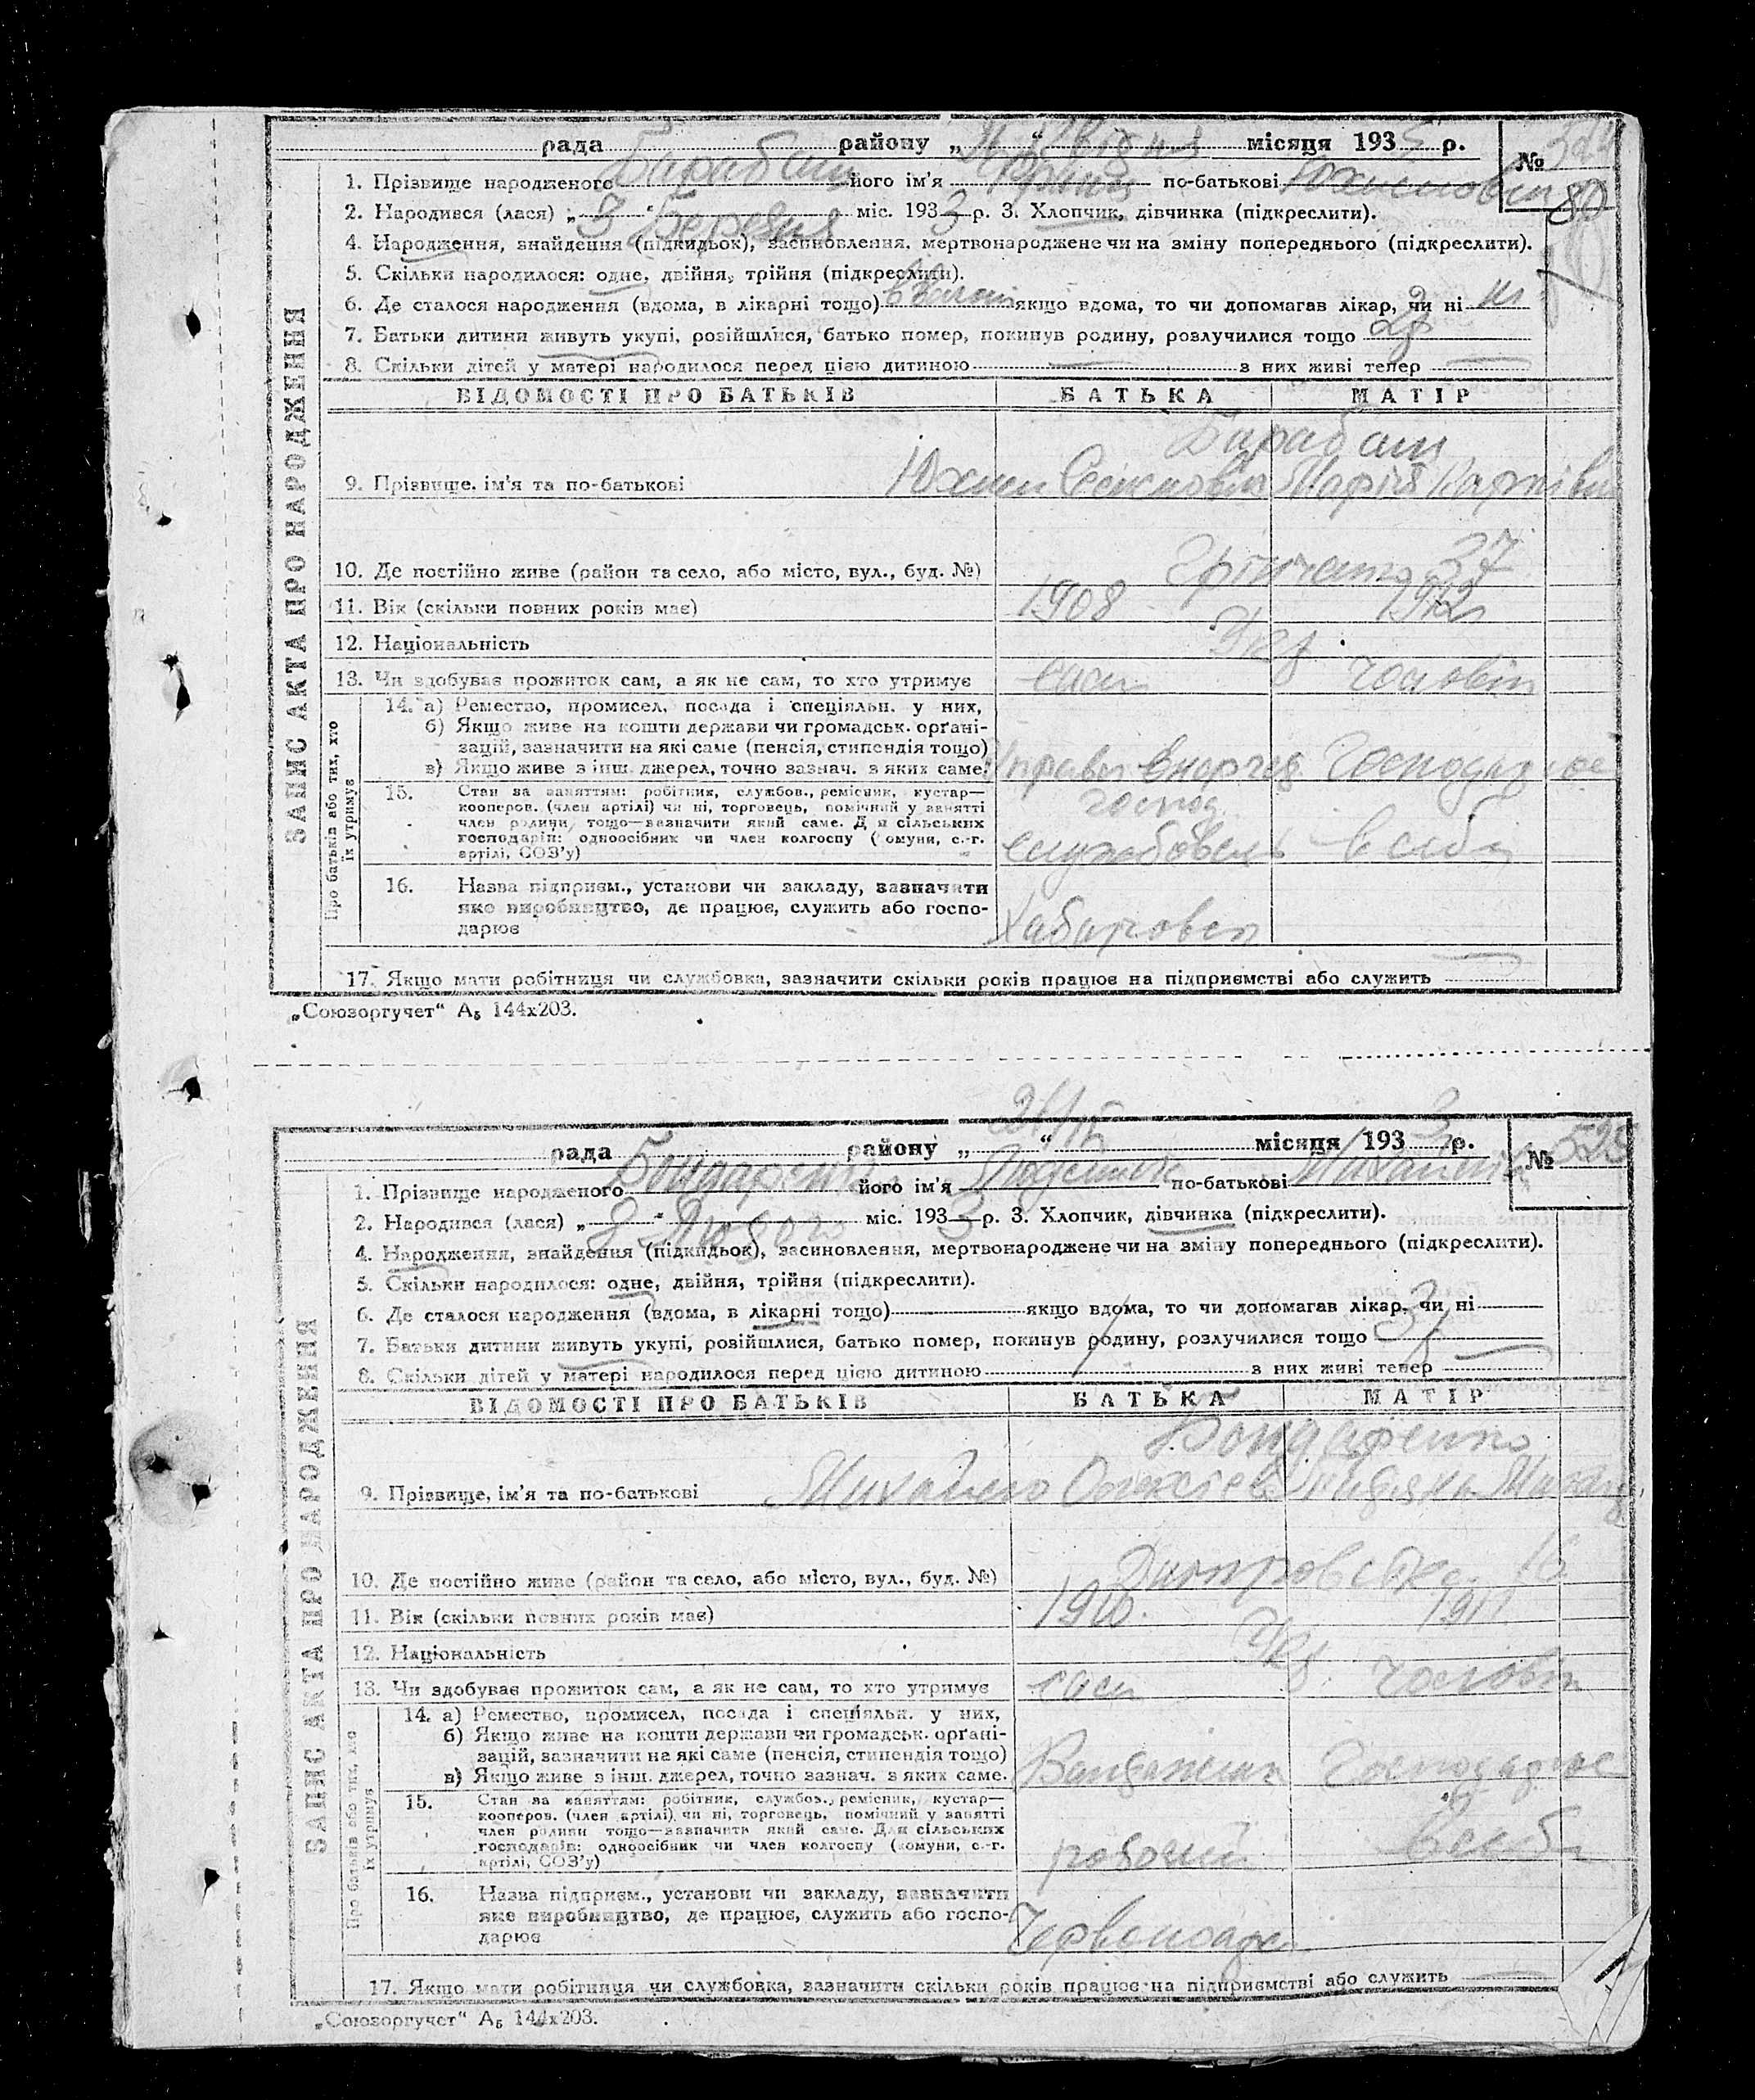 рада району „ “ місяця 193 р. №
1. Прізвище народженого Барабаш його ім'я по-батькові Юхимович
80
2. Народився (лася) „ 3 “ Березня міс. 1933 р. 3. Хлопчик, дівчинка (підкреслити).
4. Народження, знайдення (підкидьок), засиновлення, мертвонароджене чи на зміну попереднього (підкреслити).
5. Скільки народилося: одне, двійня, трійня (підкреслити).
6. Де сталося народження (вдома, в лікарні тощо) якщо вдома, то чи допомагав лікар, чи ні ні
7. Батьки дитини живуть укупі, розійшлися, батько помер, покинув родину, розлучилися тощо
8. Скільки дітей у матері народилося перед цією дитиною з них живі тепер
ЗАПИС АКТА ПРО НАРОДЖЕННЯ
ВІДОМОСТІ ПРО БАТЬКІВ БАТЬКА МАТІР
Барабаш
9. Прізвище, ім'я та по-батькові Юхим Семенович Марія Карпівна
10. Де постійно живе (район та село, або місто, вул., буд. №) 37
11. Вік (скільки повних років має) 1908 1912
12. Національність Укр
13. Чи здобуває прожиток сам, а як не сам, то хто утримує сам чоловік
Про батьків або тих, хто їх утримує
14. а) Ремество, промисел, посада і спеціяльн. у них,
б) Якщо живе на кошти держави чи громадськ. орґані-
зацій, зазначити на які саме (пенсія, стипендія тощо)
в) Якщо живе з інш. джерел, точно зазнач. з яких саме. господарює
15. Стан за заняттям: робітник, службов., ремісник, кустар—
кооперов. (член артілі) чи ні, торговець, помічний у занятті
член родини тощо—зазначити який саме. Для сільських
господарів: одноосібник чи член колгоспу (комуни, с.-г.
артілі, СОЗ'у) службовець
16. Назва підприєм., установи чи закладу, зазначити
яке виробництво, де працює, служить або госпо-
дарює
17. Якщо мати робітниця чи службовка, зазначити скільки років працює на підприємстві або служить
„Союзоргучет“ А₅ 144х203.
рада району „ “ місяця 1933 р. № 525
1. Прізвище народженого Бондаренко його ім'я по-батькові
2. Народився (лася) „ “ Лютого міс. 1933 р. 3. Хлопчик, дівчинка (підкреслити).
4. Народження, знайдення (підкидьок), засиновлення, мертвонароджене чи на зміну попереднього (підкреслити).
5. Скільки народилося: одне, двійня, трійня (підкреслити).
6. Де сталося народження (вдома, в лікарні тощо) якщо вдома, то чи допомагав лікар, чи ні
7. Батьки дитини живуть укупі, розійшлися, батько помер, покинув родину, розлучилися тощо
8. Скільки дітей у матері народилося перед цією дитиною 1 з них живі тепер
ЗАПИС АКТА ПРО НАРОДЖЕННЯ
ВІДОМОСТІ ПРО БАТЬКІВ БАТЬКА МАТІР
Бондаренко
9. Прізвище, ім'я та по-батькові Михайло Олексієв
10. Де постійно живе (район та село, або місто, вул., буд. №) Дніпровська 16
11. Вік (скільки повних років має) 1910 1911
12. Національність Укр
13. Чи здобуває прожиток сам, а як не сам, то хто утримує сам чоловік
Про батьків або тих, хто їх утримує
14. а) Ремество, промисел, посада і спеціяльн. у них,
б) Якщо живе на кошти держави чи громадськ. орґані-
зацій, зазначити на які саме (пенсія, стипендія тощо)
в) Якщо живе з інш. джерел, точно зазнач. з яких саме. господарює
15. Стан за заняттям: робітник, службов., ремісник, кустар—
кооперов. (член артілі) чи ні, торговець, помічний у занятті
член родини тощо—зазначити який саме. Для сільських
господарів: одноосібник чи член колгоспу (комуни, с.-г.
артілі, СОЗ'у) робочий
16. Назва підприєм., установи чи закладу, зазначити
яке виробництво, де працює, служить або госпо-
дарює
17. Якщо мати робітниця чи службовка, зазначити скільки років працює на підприємстві або служить
„Союзоргучет“ А₅ 144х203.